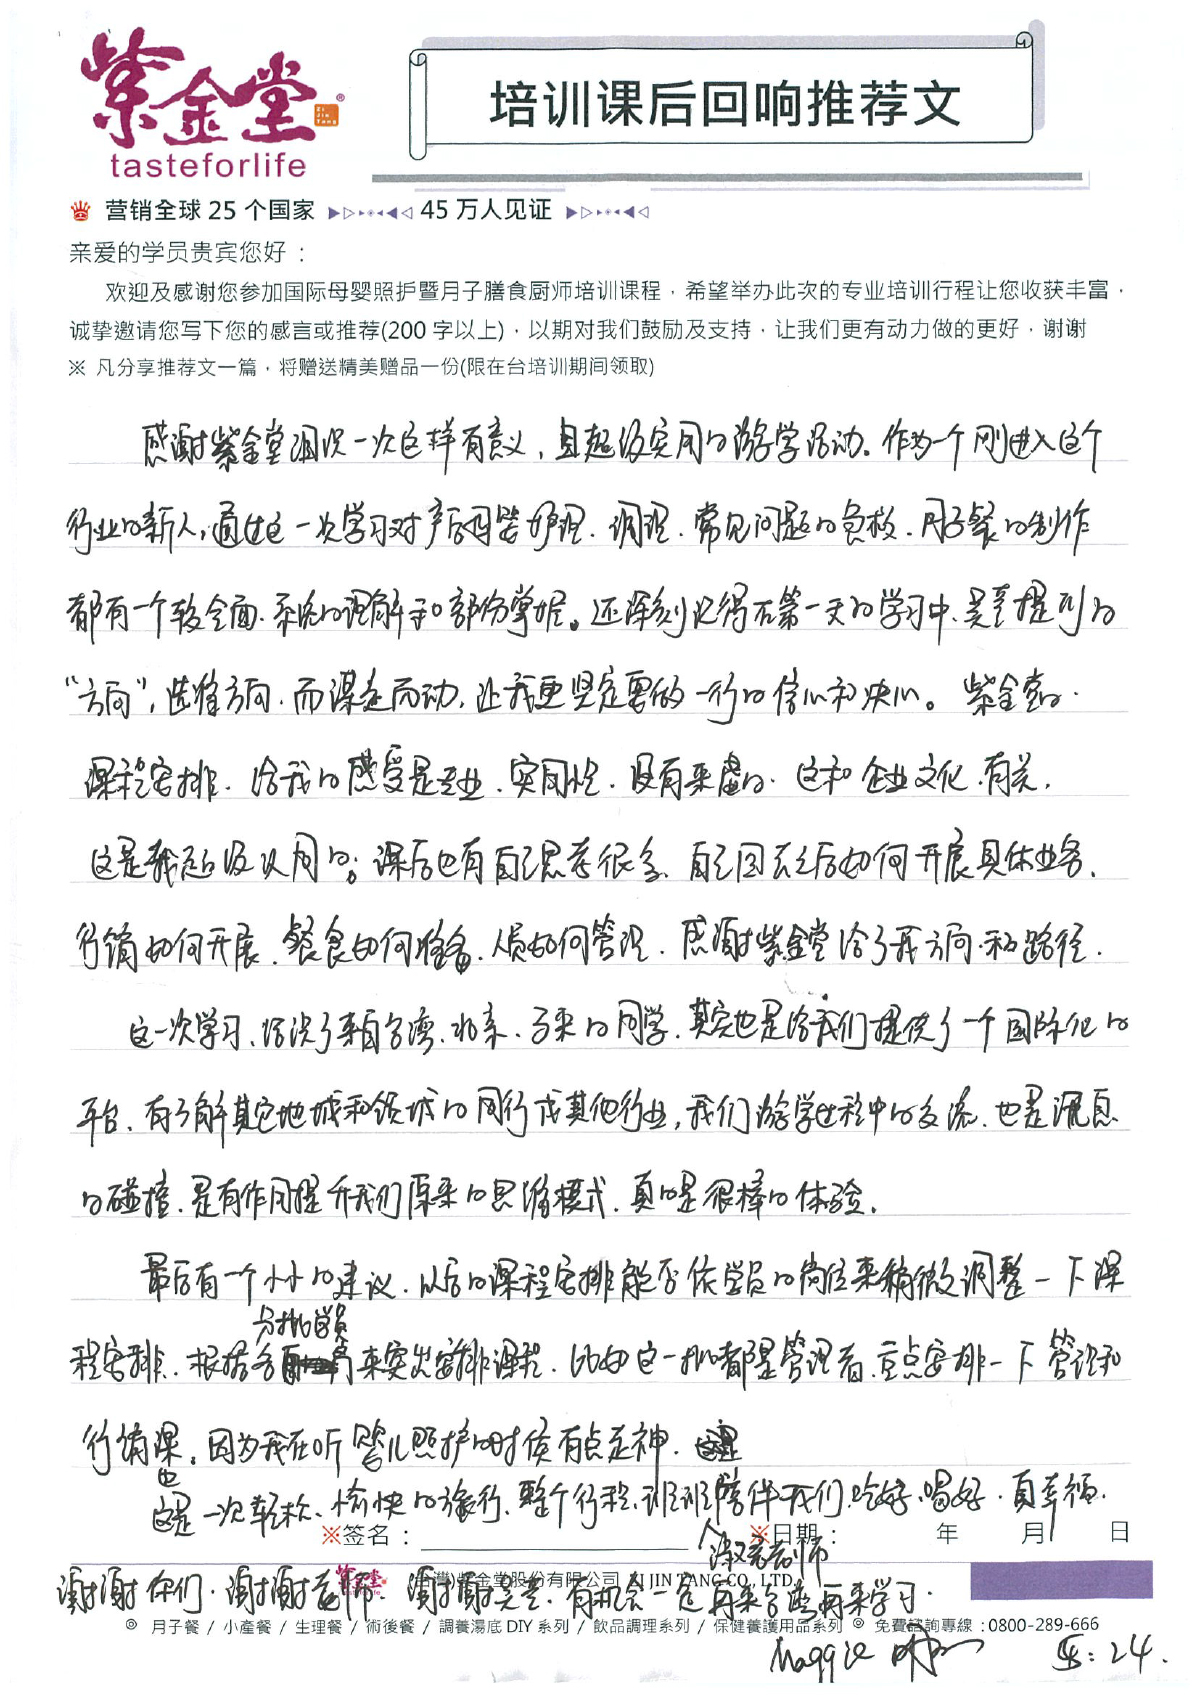 紫金堂
Xi Jin Tang
®
tasteforlife
培训课后回响推荐文
营销全球 25 个国家 45 万人见证
亲爱的学员贵宾您好：
欢迎及感谢您参加国际母婴照护暨月子膳食厨师培训课程，希望举办此次的专业培训行程让您收获丰富，
诚挚邀请您写下您的感言或推荐(200 字以上)，以期对我们鼓励及支持，让我们更有动力做的更好，谢谢
※ 凡分享推荐文一篇，将赠送精美赠品一份(限在台培训期间领取)
感谢紫金堂组织一次这样有意义，且超级实用的游学活动。作为一个刚进入这个
行业的新人，通过这一次学习对产后母婴护理、调理、常见问题的急救、月子餐的制作
都有一个较全面、系统的理解和部份掌握。还深刻记得在第一天的学习中，吴董提到的
“方向”，选准方向，而谋定而动，让我更坚定要做一行的信心和决心。紫金堂的
课程安排，给我的感受是专业、实用性，没有来虚的，这和企业文化有关，
这是我超级认同的；课后也有自己思考很多，自己回去之后如何开展具体业务，
行销如何开展，餐食如何准备，人员如何管理，感谢紫金堂给了我方向和路径。
这一次学习，结识了来自台湾、北京、马来的同学，其实也是给我们提供了一个国际化的
平台，有了解其它地域和领域的同行或其他行业，我们游学过程中的交流，也是讯息
的碰撞，是有作用提升我们原来的思维模式，真的是很棒的体验。
最后有一个小小的建议，以后的课程安排能否依学员的岗位来稍微调整一下课
程安排，根据各分批学员来突出安排课程，比如这一批都是管理者，重点安排一下管理和
行销课。因为我在听婴儿照护的时候有点走神，
这也是一次轻松、愉快的旅行，整个行程，班班陪伴我们，吃好、喝好，真幸福，
※签名： ※日期： 年 月 日
谢谢你们，谢谢老师，谢谢吴董，有机会一定再来台湾再来学习。
紫金堂 (台灣)紫金堂股份有限公司 XI JIN TANG CO., LTD.
◎ 月子餐 / 小產餐 / 生理餐 / 術後餐 / 調養湯底 DIY 系列 / 飲品調理系列 / 保健養護用品系列 ◎ 免費諮詢專線 :0800-289-666
Maggie 5:24.